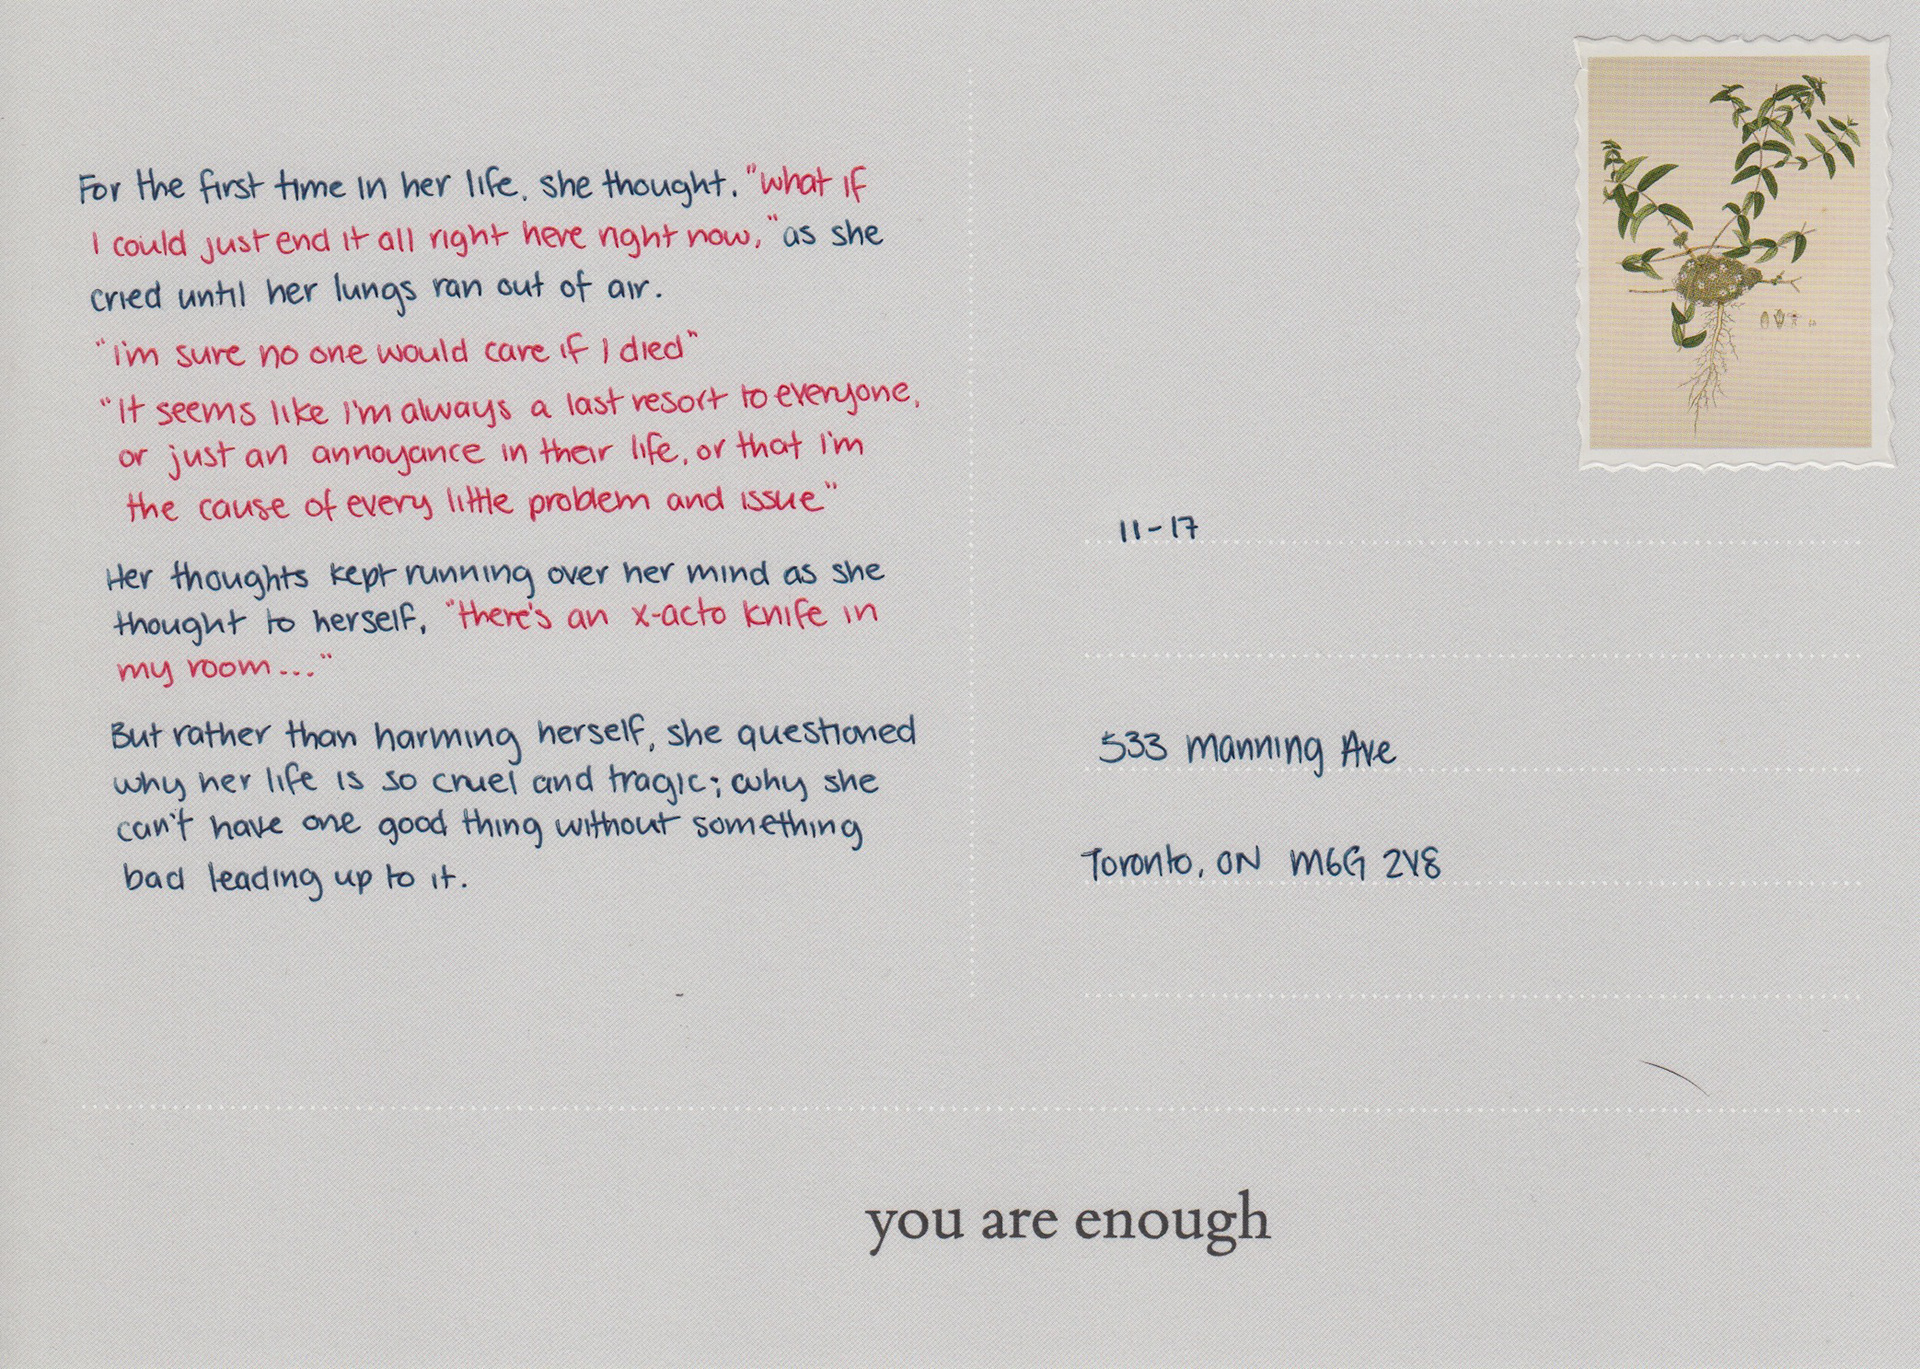 For the first time in her life, she thought, "what if
I could just end it all right here right now," as she
cried until her lungs ran out of air.
"I'm sure no one would care if I died"
"It seems like I'm always a last resort to everyone,
or just an annoyance in their life, or that I'm
the cause of every little problem and issue"
Her thoughts kept running over her mind as she
thought to herself, "there's an x-acto knife in
my room..."
But rather than harming herself, she questioned
why her life is so cruel and tragic; why she
can't have one good thing without something
bad leading up to it.
11-17
533 Manning Ave
Toronto, ON M6G 2V8
you are enough